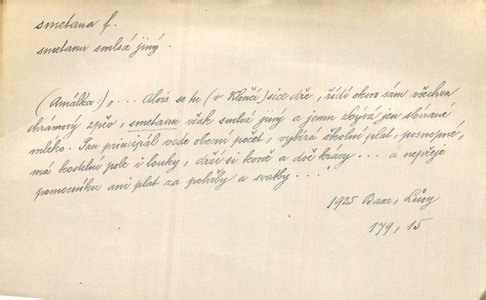 smetana f.
smetanu smlsá jiný.
(Amálka:) „... Alois se tu (v Klenčí) sice dře, řídí skoro sám všechen
chrámový zpěv, smetanu však smlsá jiný a jemu zbývá jen sbírané
mléko. Pan principál vede obecní počet, vybírá školní plat, posnopné,
má kostelní pole i louky, drží si koně a dvě krávy ... a nepřeje
pomocníku ani plat za pohřby a svatby ..."
1925 Baar, Lůsy
179, 15